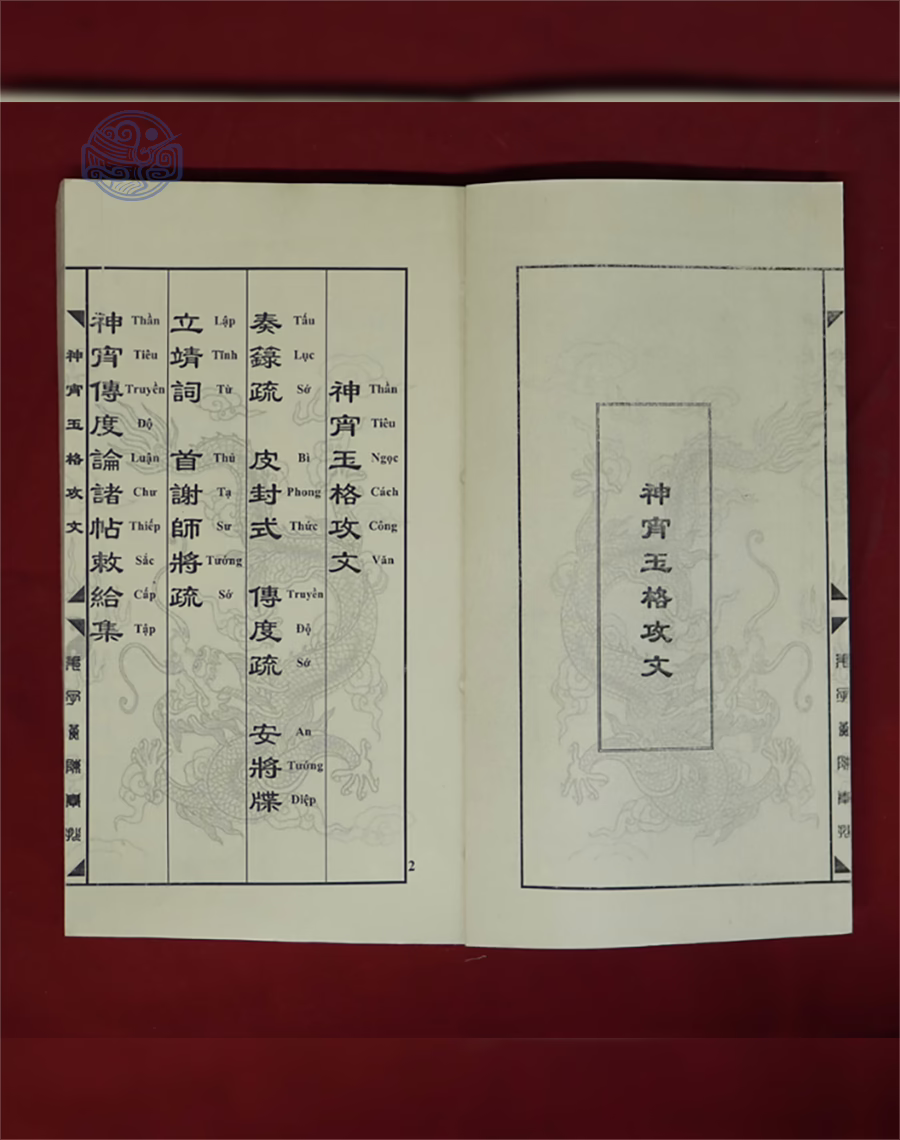 神宵玉格攻文
神宵玉格攻文
Thần Tiêu Ngọc Cách Công Văn
奏籙疏 皮封式 傳度疏 安將牒
Tấu Lục Sớ Bì Phong Thức Truyền Độ Sớ An Tướng Diệp
立靖詞 首謝師將疏
Lập Tĩnh Từ Thủ Tạ Sư Tướng Sớ
神宵傳度論諸帖敕給集
Thần Tiêu Truyền Độ Luận Chư Thiếp Sắc Cấp Tập
神宵玉格攻文
2